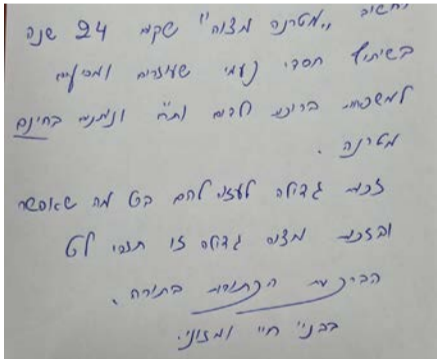 וחשוב "מטרנה מצוה" שקם 24 שנה
בשיתוף חסדי נעמי שעוזרים ומסייעים
למשפחות ברוכות ילדים ות"ח ונותנים בחינם
מטרנה.
זכות גדולה לעזור להם בכל מה שאפשר
ובזכות מצוה גדולה זו תזכו לכל
הברכות הכתובות בתורה,
בבני חיי ומזוני.